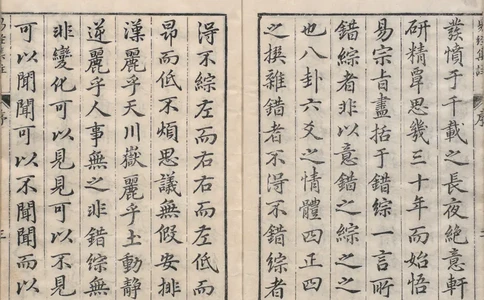 易經集註
序
發憤于千載之長夜絶意軒
研精覃思幾三十年而始悟
易宗旨盡括于錯綜一言所
錯綜者非以意錯之綜之之
也八卦六爻之情體四正四
之撰雜錯者不得不錯綜者
得不綜左而右右而左低而
昻而低不煩思議無假安排
漢麗乎天川嶽麗乎土動靜
逆麗乎人事無之非錯綜無
非變化可以見見可以不見
可以聞聞可以不聞聞而以
易經集註
序
三